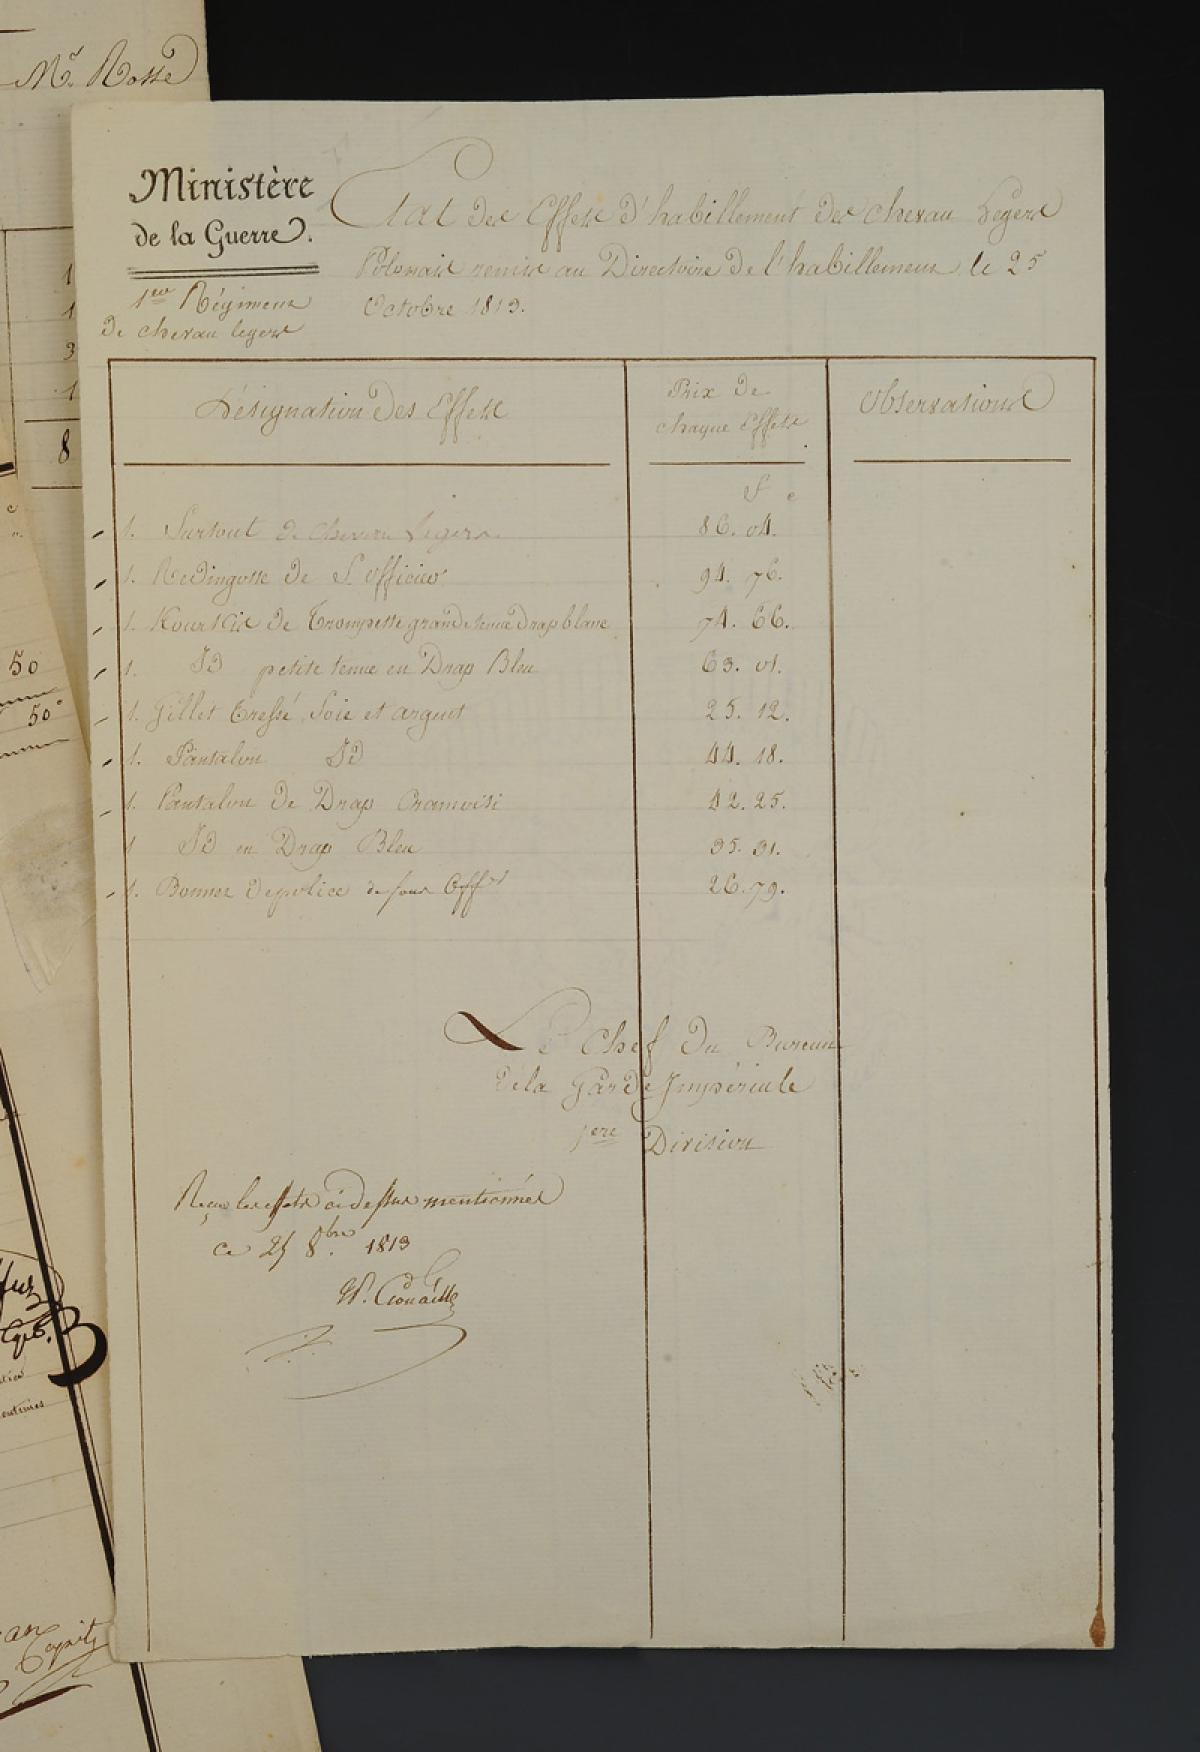 Mr. Rosse
Ministère
de la Guerre.
1er Régiment
de chevau legers
Etat des Effets d'habillement des chevau Legers
Polonais remis au Directoire de l'habillement le 25
Octobre 1813.
Désignation des Effets
Prix de
chaque Effets
Observations
f c
1. Surtout de chevau Legers. 86. 04.
1. Redingotte de S. officier 94. 76.
1. Kourtkis de Trompette grande tenue drap blanc 74. 66.
1. Id petite tenue en Drap Bleu 63. 01.
1. Gillet tressé, Soie et argent 25. 12.
1. Pantalon Id 44. 18.
1. Pantalon de Drap Cramoisi 42. 25.
1 Id en Drap Bleu 35. 31.
1. Bonnet depolice de sous Offrs 26. 79.
Le Chef du Bureau
de la Garde Impériale
1ere Division
Reçu les effets ci dessus mentionnés
ce 25 8bre. 1813
1
1
3
1
8
50
50